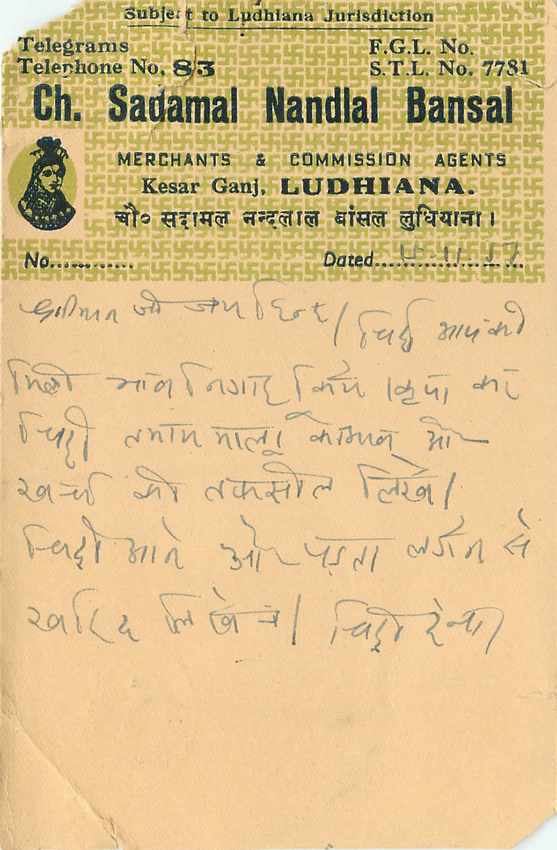 Subject to Ludhiana Jurisdiction
Telegrams F.G.L. No.
Telephone No. 83 S.T.L. No. 7781
Ch. Sadamal Nandlal Bansal
MERCHANTS & COMMISSION AGENTS
Kesar Ganj, LUDHIANA.
चौ० सद्दामल नन्दलाल बांसल लुधियाना।
No............ Dated 15.11.57
श्रीमान जी जय हिन्द। चिट्ठी आपकी
मिली
चिट्ठी तमाम और
खर्चा की तफसील लिखें।
चिट्ठी आने और पड़ता लगने से
खरीद लिखेंगे। चिट्ठी देना।